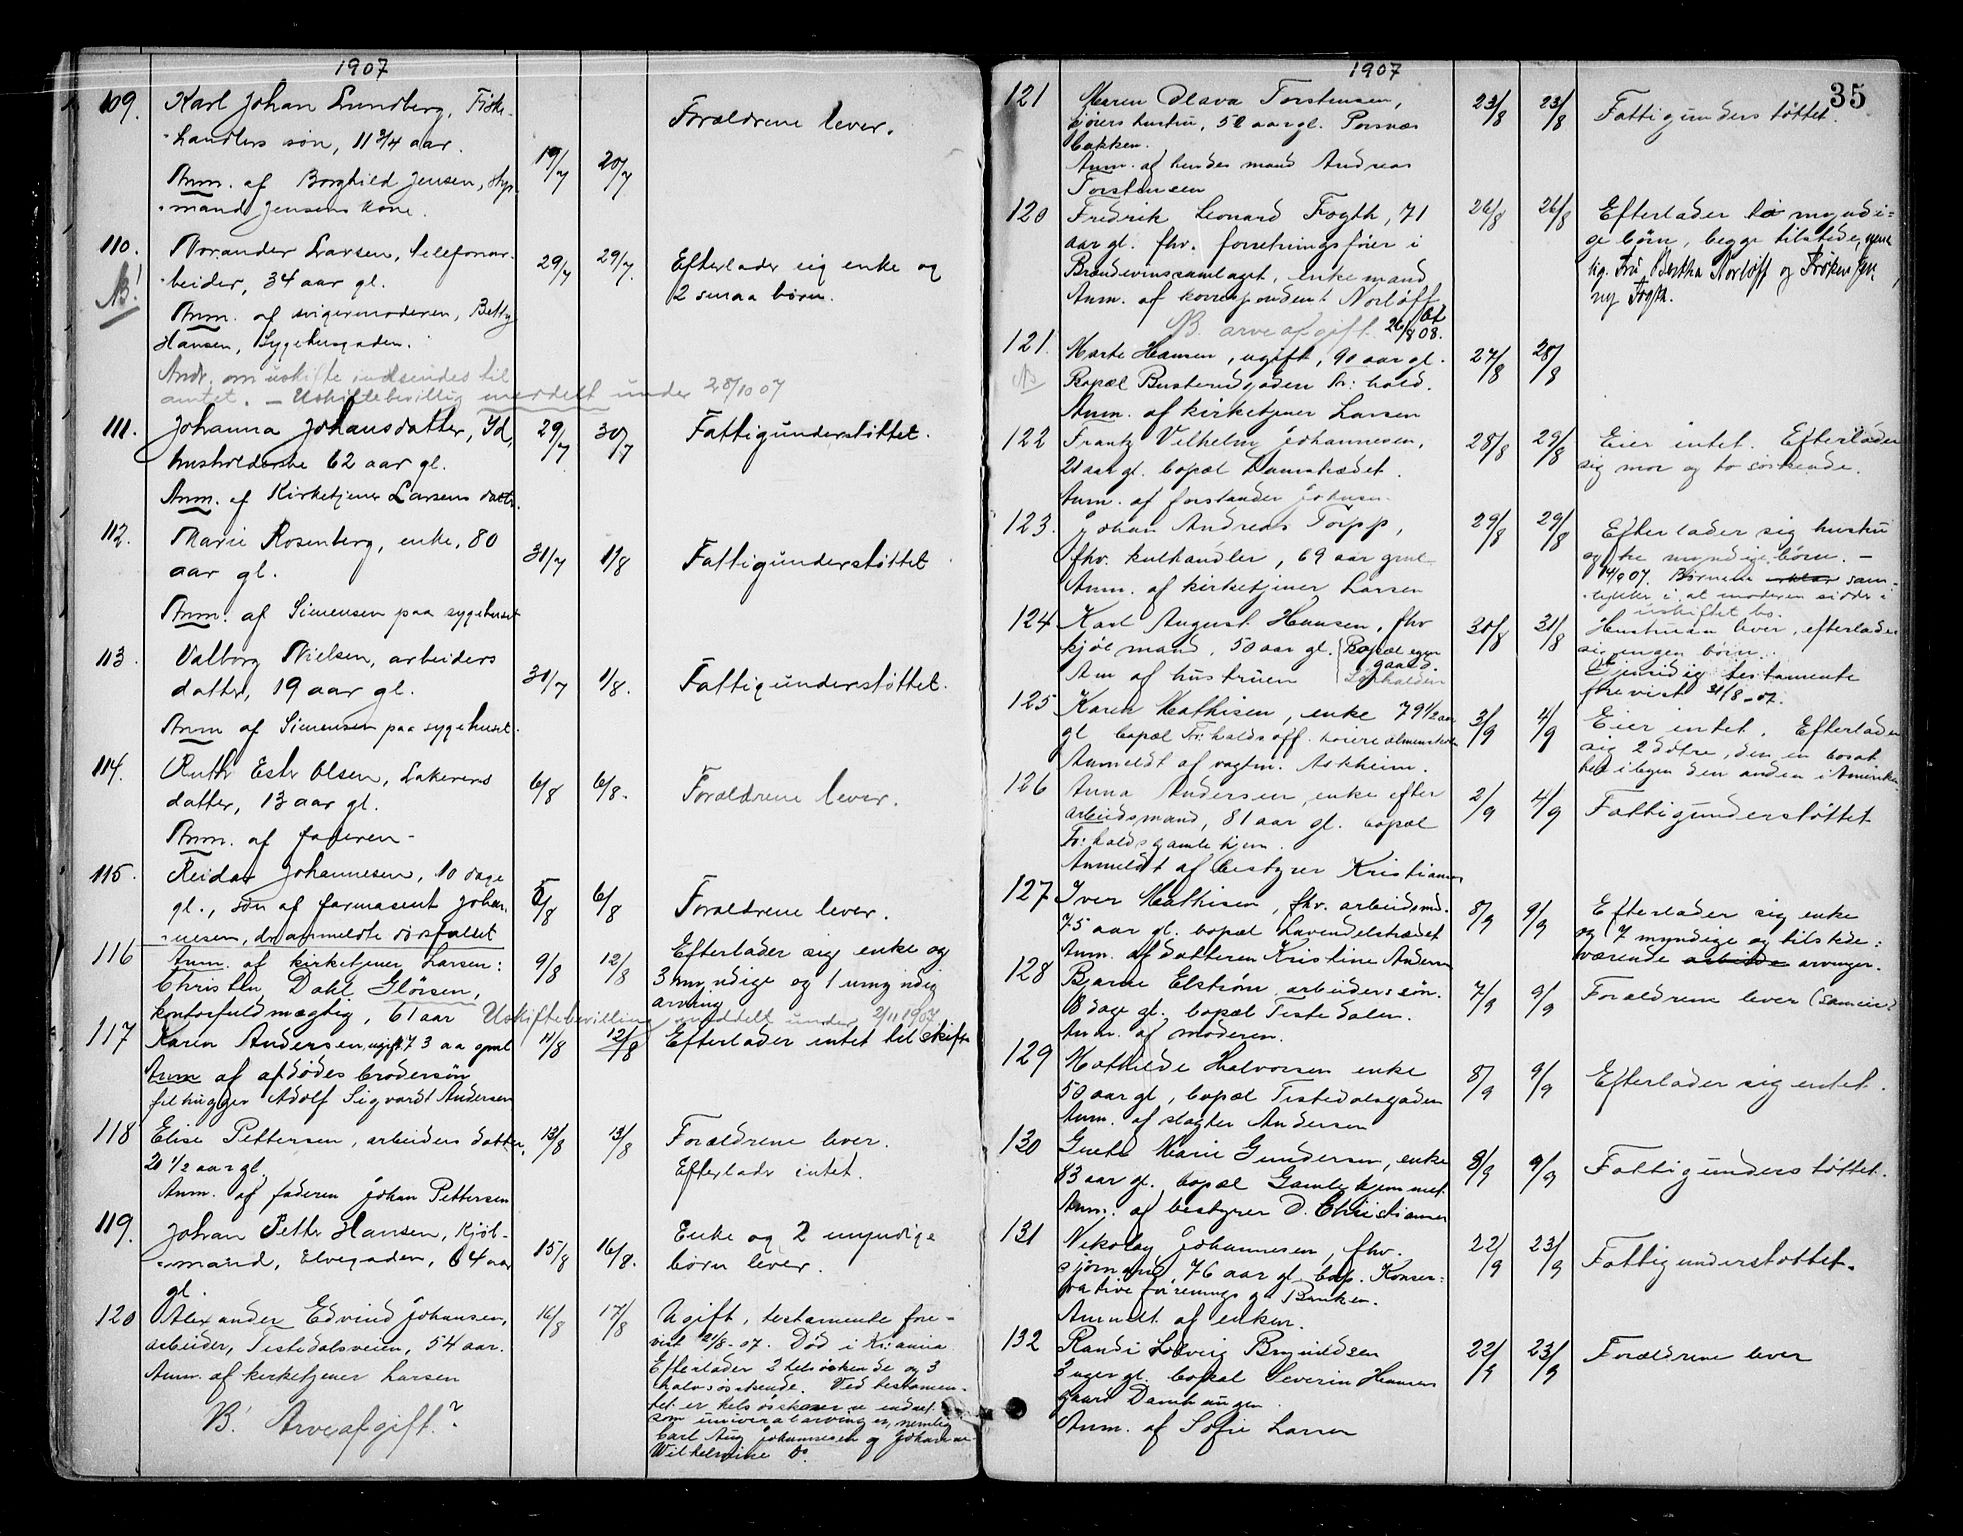 1907
109. Karl Johan Lundberg, Fiske-
handlers søn, 11 3/4 aar.
Anm. af Borghild Jensen, Styr-
mand Jensens kone.
19/7 20/7
Forældrene lever.
110. Norander Larsen, telefonar-
beider, 34 aar gl.
NB!
Anm. af svigermoderen, Betty
Hansen, Sygehusgaden.
29/7 29/7.
Efterlader sig enke og
2 smaa børn.
Andr. om uskifte indsendes til
amtet. – Uskiftebevilling meddelt under 28/10 07
111. Johanna Johansdatter, Id,
husholderske 62 aar gl.
Anm. af Kirketjener Larsens datter.
29/7 30/7
Fattigunderstøttet.
112. Marie Rosenberg, enke, 80
aar gl.
Anm. af Simensen paa sygehuset
31/7 1/8
Fattigunderstøttet
113. Valborg Nielsen, arbeiders
datter, 19 aar gl.
Anm af Simensen paa sygehuset.
31/7 1/8.
Fattigunderstøttet.
114. Ruth Ester Olsen, Lakerers
datter, 13 aar gl.
Anm. af faderen -
6/8 6/8.
Forældrene lever.
115. Reidar Johannesen, 10 dage
gl., søn af farmasent Johan-
nesen, der anmeldte dødsfallet
5/8 6/8
Forældrene lever.
116 Anm. af kirketjener Larsen:
Christen Dahl Glørsen,
kontorfuldmægtig, 61 aar
9/8 12/8
Efterlader sig enke og
3 myndige og 1 umyndig
arving
Uskiftebevilling meddelt under 2/11 1907
117 Karen Andersen, ugift, 73 aa gml
Anm af afdødes brodersøn
filhugger Adolf Sigvardt Andersen
11/8 12/8
Efterlader intet til skifte
118 Elise Pettersen, arbeiders datter,
20 1/2 aar gl.
Anm. af faderen Johan Pettersen
13/8 13/8
Forældrene lever.
Efterladr intet.
119. Johan Petter Hansen, Kjøb-
mand, Elvegaden, 64 aar
gl.
15/8 16/8.
Enke og 2 umyndige
børn lever.
120 Alexander Edvind Johansen,
arbeider, Tistedalsveien, 54 aar.
Anm. af kirketjener Larsen
NB! Arveafgift?
16/8 17/8
Ugift, testamente fore-
vist 21/8-07. Død i Kr:ania
Efterlader 2 helsøskende og 3
halvsøskende. Ved testamen-
tet er helsøskene indsat
som universalarvinger, nemlig
Carl Aug Johannesen og Johanne
Wilhelmine Do.
1907
35
121 Maren Olava Torstensen,
kjørers hustru, 52 aar gl. Porsnæs
bakken.
Anm. af hendes mand Andreas
Torstensen
23/8 23/8
Fattigunderstøttet.
120 Fredrik Leonard Fogth, 71
aar gl. fhv. forretningsfører i
Brændevinssamlaget, enkemand
Anm. af korrespondent Norløff
NB. arveafgift 26/8 08.
26/8 26/8
Efterlader to myndi-
ge børn, begge tilstede, nem
lig Fru Bertha Norløff og Frøken
Fogth.
121. Marte Hansen, ugift, 90 aar gl.
NB
Bopæl Busterudgaden Fr: hald.
Anm. af kirketjener Larsen
27/8 28/8
122 Frantz Vilhelm Johannesen,
21 aar gl. bopæl Damstrædet.
Anm. af forstander Johnsen
28/8 29/8
Eier intet. Efterlader
sig mor og to søskende.
123. Johan Andreas Torpp,
fhv. kulhandler, 69 aar gml
Anm. af kirketjener Larsen
29/8 29/8
Efterlader sig hustru
og tre myndige børn. –
14/9 07. Børnene sam-
tykker i, at moderen sidder i
uskiftet bo.
124 Karl August Hansen, fhv
kjøbmand, 50 aar gl. Bopæl egen
gaard
Anm af hustruen
30/8 31/8
Hustruen lever, efterlader
sig ingen børn.
Gjensidig testamente
forevist 31/8-07.
125 Karen Mathisen, enke 79 1/2 aar
gl bopæl Fr:halds off. høiere almenskole
Anmeldt af vagtm. Askheim.
3/9 4/9
Eier intet. Efterlader
sig 2 døtre, den en bosat
her i byen den anden i Amerika
126 Anna Andersen, enke efter
arbeidsmand, 81 aar gl. bopæl
Fr:halds gamlehjem.
Anmeldt af bestyrer Kristiansen
2/9 4/9
Fattigunderstøttet
127 Iver Mathisen, fhv. arbeidsmd.
75 aar gl. bopæl Lavendelstrædet
Anm. af datteren Kristine Andersen
8/9 9/9
Efterlader sig enke
og 7 myndige og tilstede:
værende arvinger.
128 Bjarne Elstrøm arbeiders søn.
18 dage gl. bopæl Tistedalen.
Anm. af moderen.
7/9 9/9
Forældrene lever
129 Mathilde Halvorsen enke
50 aar gl, bopæl Tistedalsgaden
Anm. af slagter Andersen
8/9 9/9
Efterlader sig intet.
130 Grete Marie Gundersen, enke
83 aar gl. bopæl Gamlehjemmet.
Anm. af bestyrer D. Christiansen
8/9 9/9
Fattigunderstøttet.
131 Nikolay Johannesen, fhv.
sjømand, 76 aar gl. bop. Konser-
vative forenings gd Banken.
Anmeldt af enken.
22/9 23/9
Fattigunderstøttet.
132 Randi Lovise Brynildsen
3 uger gl. bopæl Severin Hansens
gaard Damhaugen.
Anm. af Sofie Larsen
22/9 23/9
Forældrene lever